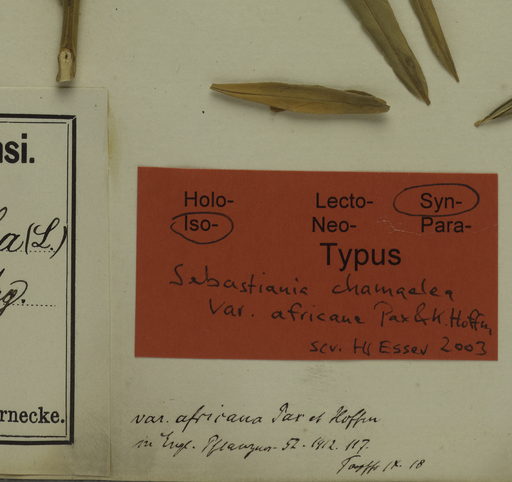 nsi.
a (L.)
g.
rnecke.
Holo- Lecto- Syn-
Iso- Neo- Para-
Typus
Sebastiania chamaelea
var. africana Pax & K. Hoffm.
scr. HJ Esser 2003
var. africana Pax et Hoffm
in Engl. Pflanzenr. 52. 1912. 117.
IX. 18